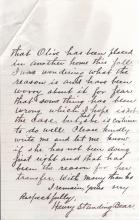 that Olive has been placed
in another home this fall.
I was wondering what the
reason is and have been
worry about it for fear
that some thing has been
wrong which I hope is not
the case. but she is continue
to do well. Please kindly
write me and let me know
if she has not been doing
just right and that has
been the reason for her
transfer. With more than this
I remain yours very
Respectfully,
Henry Standing Bear